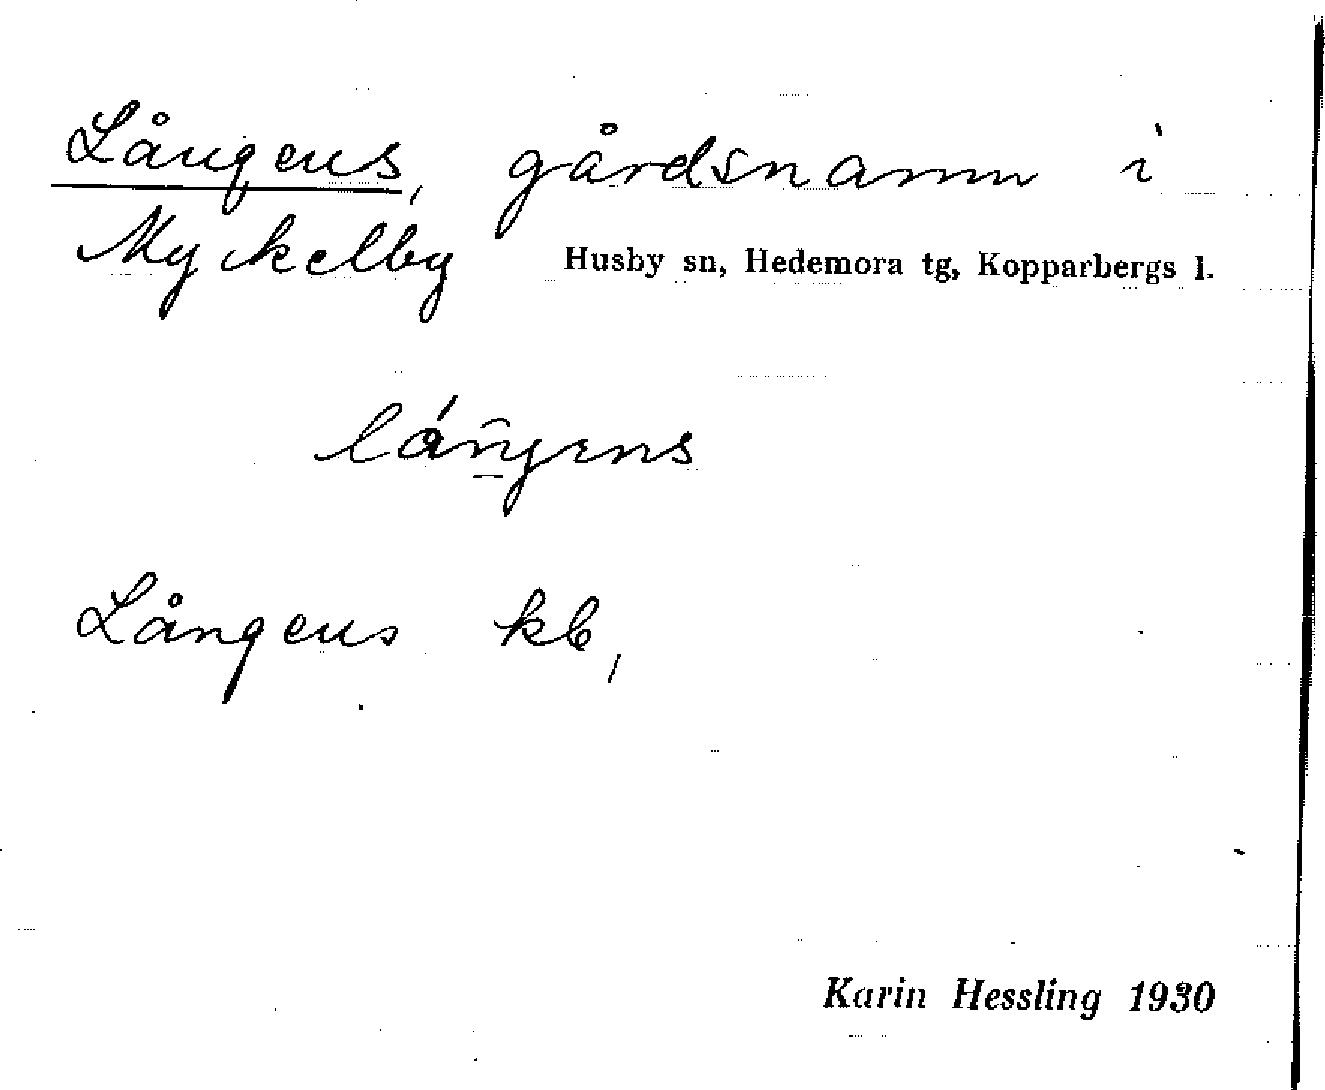 Långens, gårdsnamn i
Myckelby Husby sn, Hedemora tg, Kopparbergs l.
Långens kb,
Karin Hessling 1930